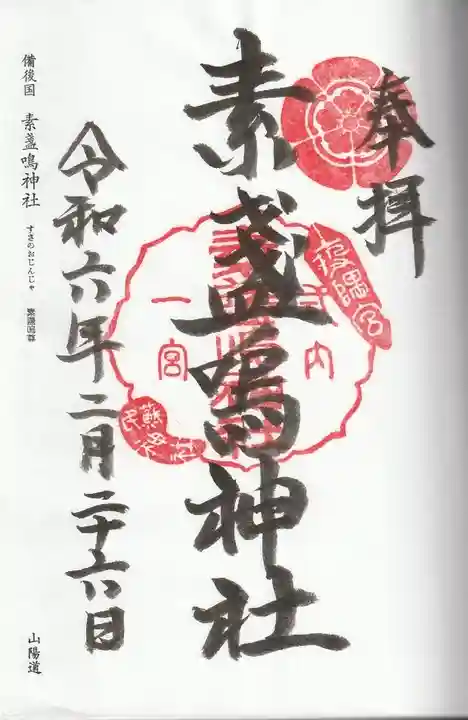 奉拝
素盞嗚神社
式内
一宮
疫隅宮
蘇民将来
令和六年二月二十六日
備後国 素盞嗚神社 すさのおじんじゃ
山陽道